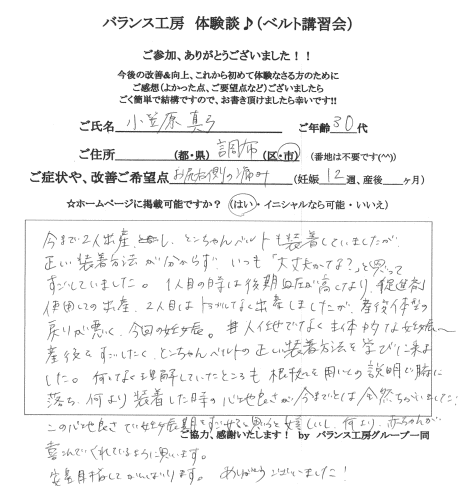 バランス工房 体験談♪（ベルト講習会）
ご参加、ありがとうございました！！
今後の改善&向上、これから初めて体験なさる方のために
ご感想（よかった点、ご要望点など）ございましたら
ごく簡単で結構ですので、お書き頂けましたら幸いです!!
ご氏名 小笠原 真弓 ご年齢 30代
ご住所 （都・県） 調布 （区・市） （番地は不要です(^^)）
ご症状や、改善ご希望点 お尻右側の痛み （妊娠 12 週、産後 ヶ月）
☆ホームページに掲載可能ですか？ （はい・イニシャルなら可能・いいえ）
今まで2人出産し、とこちゃんベルトも装着していましたが、
正しい装着方法が分からず、いつも「大丈夫かな？」と思って
すごしていました。1人目の時は後期血圧が高くなり、促進剤
使用しての出産、2人目はトラブルなく出産しましたが、産後体型の
戻りが悪く、今回の妊娠。人任せでなく主体的な妊娠〜
産後をすごしたく、とこちゃんベルトの正しい装着方法を学びに来ま
した。何となく理解していたところも根拠を用いての説明で腑に
落ち、何より装着した時の心地良さが今までとは全然ちがいました！
この心地良さで妊娠期をすごせると思うと嬉しいし、何より、赤ちゃんが
ご協力、感謝いたします！ by バランス工房グループ一同
喜んでくれているように思います。
安産目指してがんばります。ありがとうございました！